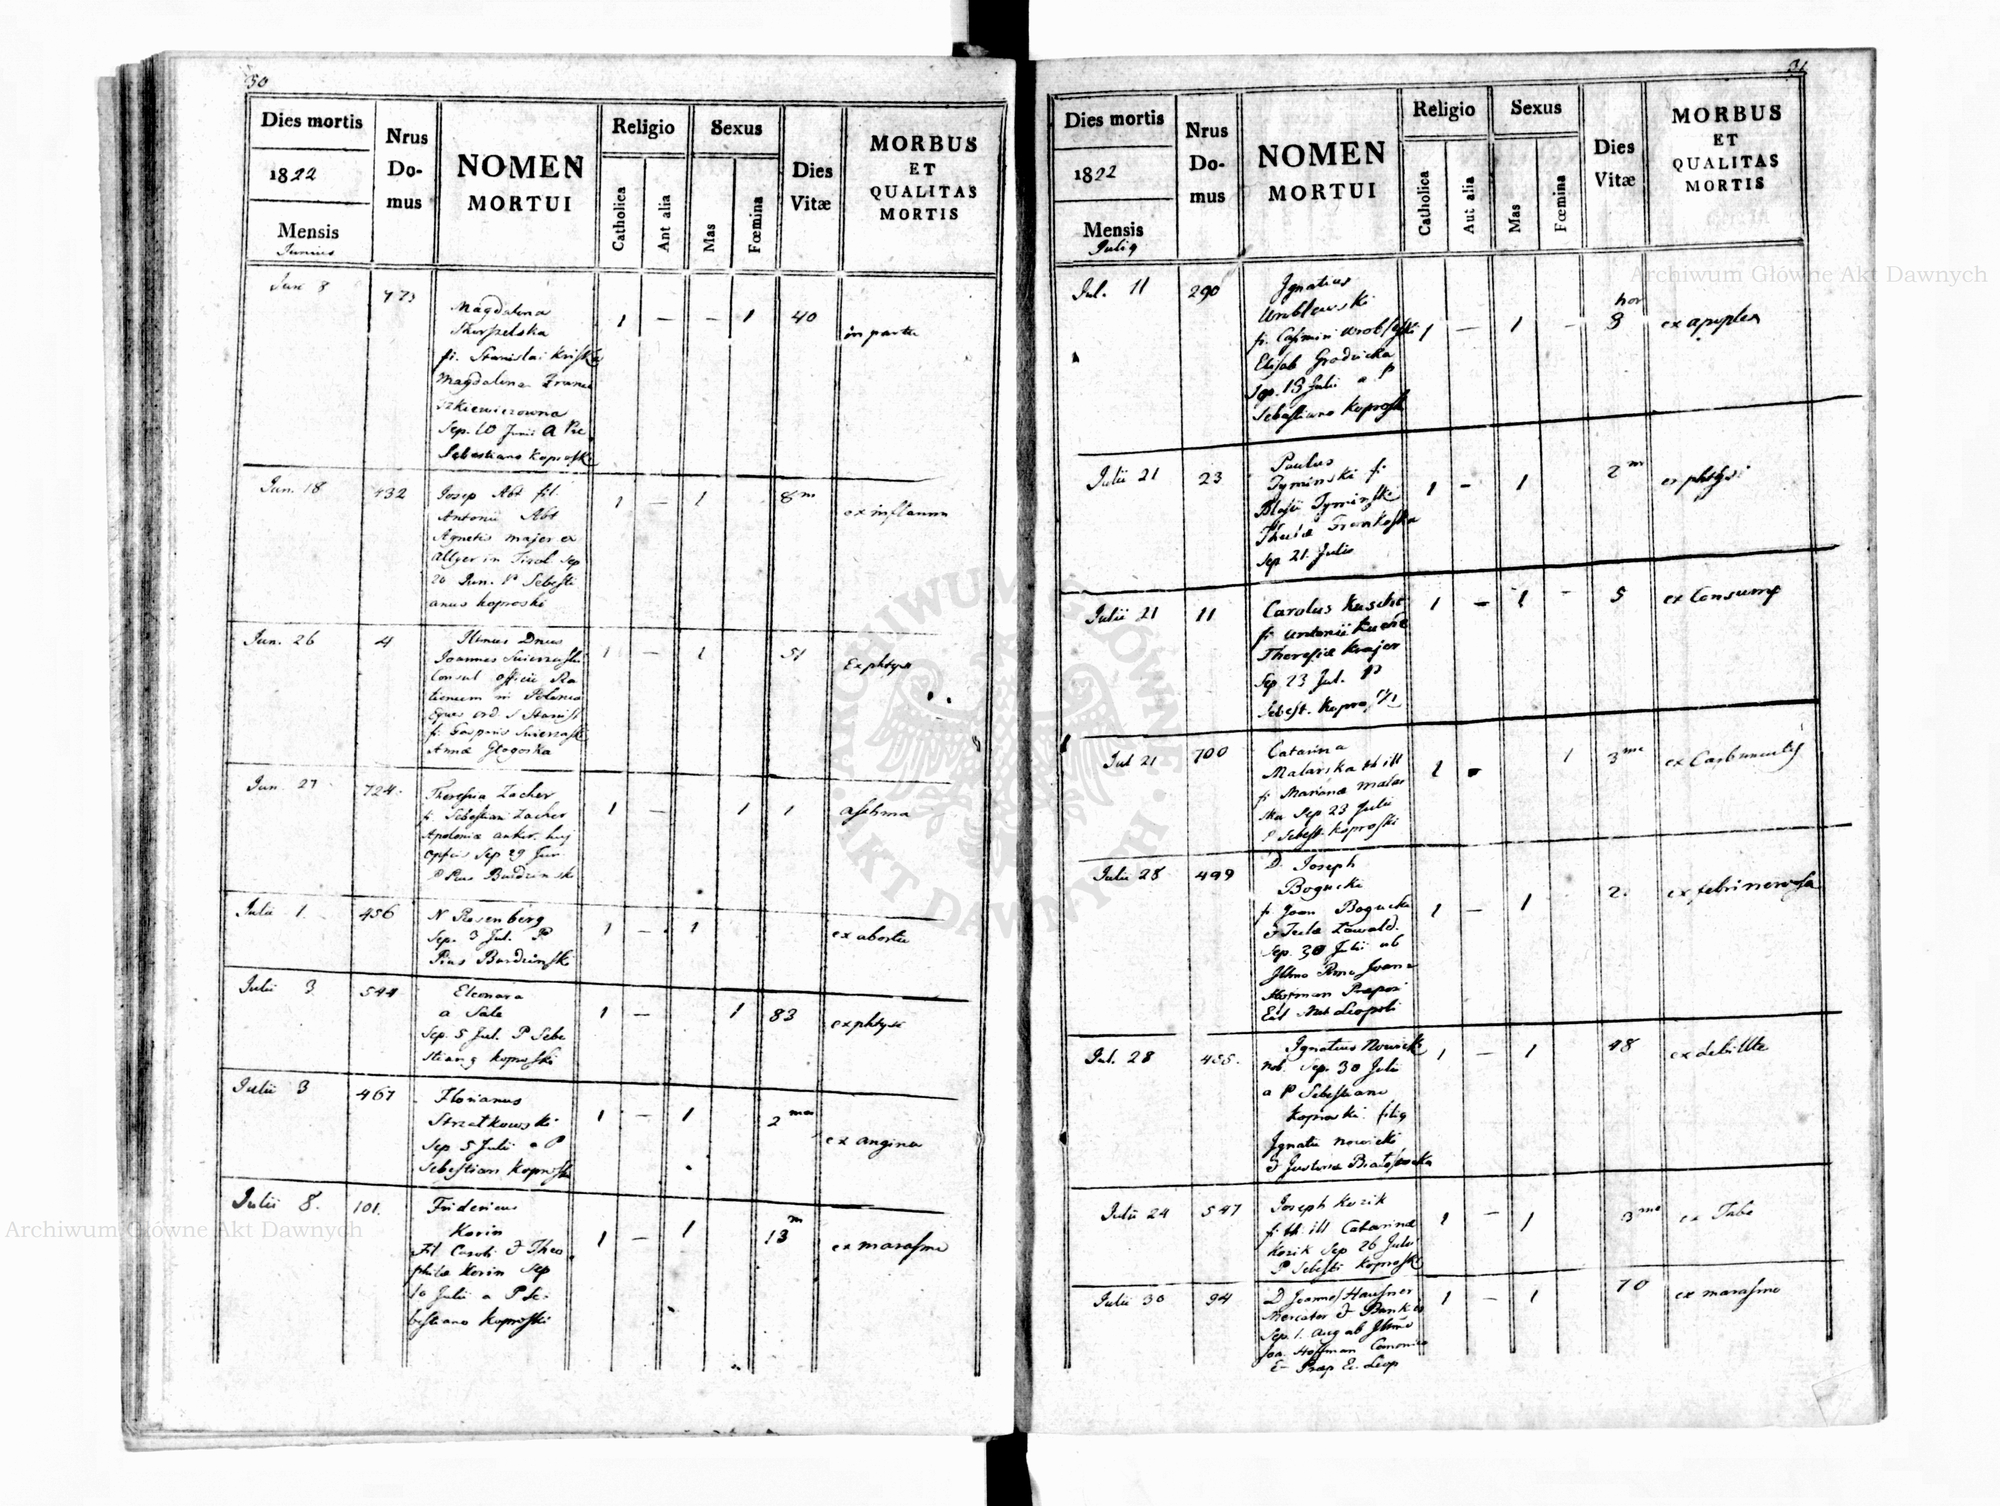 30
Dies mortis
1822
Mensis
Junius
Nrus
Do-
mus
NOMEN
MORTUI
Religio
Catholica
Ant alia
Sexus
Mas
Fœmina
Dies
Vitæ
MORBUS
ET
QUALITAS
MORTIS
Jun 8
473
Magdalena
Skorpelska
fi. Stanislai
Magdalena
Sep. 10 Junii a
Sebastiano Koproski
1 — — 1
40
in partu
Jun. 18
432
Josep Abt fil.
Antonii Abt
Agnetis majer ex
Allger in Tirol Sep
20 Jun. P Sebesti
anus koproski
1 — 1
8 m
ex inflamm
Jun. 26
4
Illmus Dnus
Joannes Swierzaski
Consul officii Ra
tionum in
Eques ord. S Stanist
fi. Gasparis Swierzaski
Annæ Glogoska
1 — 1
51
Ex phtysi
Jun. 27
724
Theresia Zacher
fi. Sebestiani Zacher
Apoloniæ
Sep 29 Jun
P Pius Burdzinski
1 — 1
1
asthma
Julii 1.
456
N Rosenberg
Sep. 3 Jul. P
Pius Burdzinski
1 — 1
ex abortu
Julii 3
544
Eleonara
a Sale
Sep. 5 Jul. P Sebe
stiang koproski
1 — 1
83
ex phtysi
Julii 3
467
Florianus
Strzatkowski
Sep 5 Julii a P
Sebestian Koproski
1 — 1
2
ex angina
Julii 8.
101.
Fridericus
Korin
Fil. Caroli & Theo
philæ Korin Sep
10 Julii a P Se-
bestiano Koproski
1 — 1
13 m
ex marasmo
31
Dies mortis
1822
Mensis
Juliq
Nrus
Do-
mus
NOMEN
MORTUI
Religio
Catholica
Aut alia
Sexus
Mas
Fœmina
Dies
Vitæ
MORBUS
ET
QUALITAS
MORTIS
Jul. 11
290
Ignatius
Wrublewski
fi. Casimiri
Elisab Grodzicka
Sep. 13 Julii a P
Sebastiano Koproski
1 — 1 —
hor
8
ex apoplex
Julii 21
23
Paulus
Tyminski fi
Blasii Tyminski
Sep 21. Julii
1 — 1
2 m
ex phtysi
Julii 21
11
Carolus Kuscht
fi Antonii
Theresiæ Krajer
Sep 23 Jul. P
Sebest. Kopro
1 — 1 —
5
ex Consump
Jul 21
700
Catarina
Malarska th ill
fi Marianæ malar
ska Sep 23 Julii
P Sebest. Koproski
1 1
3
ex Carbunculis
Julii 28
499
D. Joseph
Bogucki
fi Joan Bogucki
& Teclæ Zawald.
Sep. 30 Julii ab
Illmo Rmo Joane
Hofman Præposi
Leopoli
1 — 1
2.
ex febri nervosa
Jul. 28
455.
Ignatius Nowicki
nob. Sep. 30 Julii
a P Sebestiano
Koproski. filiq
Ignatii Nowicki
& Justinæ
1 — 1
48
ex debilitte
Julii 24
547
Joseph Kozik
fi th. ill Catarinæ
Kozik Sep 26 Julii
P Sebesti Koproski
1 — 1
3
ex Tabe
Julii 30
94
D Joannes Hausner
Mercator & Banker
Sep. 1. Aug ab Illmo
Joa. Hoffman Canonico
& Præp Ec. Leop
1 — 1
70
ex marasmo
Archiwum Główne Akt Dawnych
Archiwum Główne Akt Dawnych
ARCHIWUM GŁÓWNE
AKT DAWNYCH